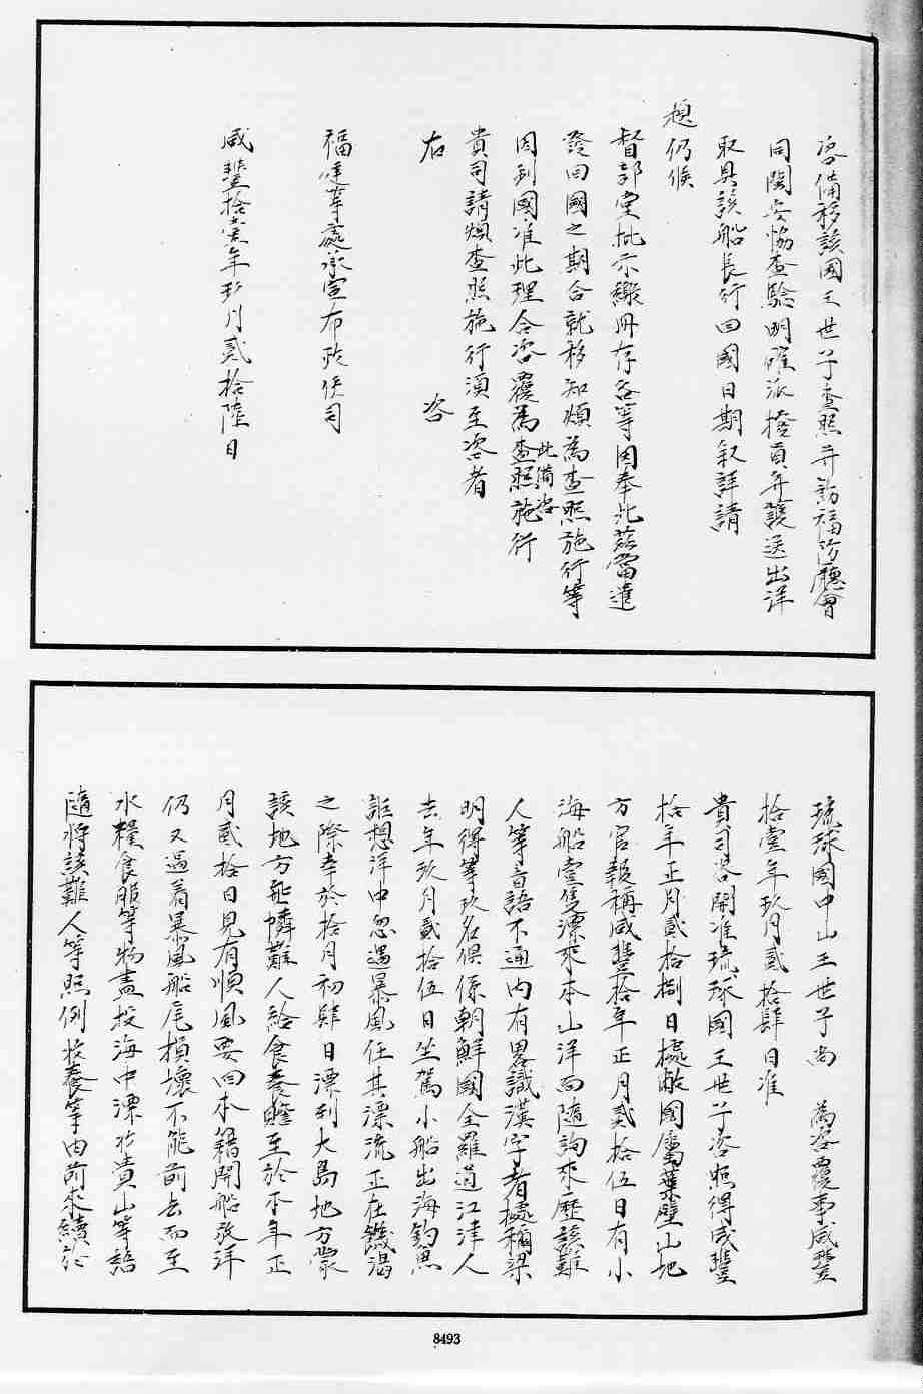 咨備移該國王世子查照并訪福防廳會
同閩安協查驗明確派撥員弁護送出洋
取具該船長行回國日期叙詳請
題仍候
督部堂批示繳冊存各等因奉此茲當遣
發回國之期合就移知煩為查照施行等
因到國准此理合咨覆為查照施行
此備咨
貴司請煩查照施行須至咨者
右 咨
福建等處承宣布政使司
咸豐拾壹年玖月貳拾陸日
琉球國中山王世子尚 為咨覆事咸豐
拾壹年玖月貳拾肆日准
貴司咨開准琉球國王世子咨照得咸豐
拾年正月貳拾捌日據敝國屬葉壁山地
方官報稱咸豐拾年正月貳拾伍日有小
海船壹隻漂來本山洋面隨詢來歷該難
人等言語不通內有畧識漢字者據稱梁
明得等玖名俱係朝鮮國全羅道江津人
去年玖月貳拾伍日坐駕小船出海釣魚
詎想洋中忽遇暴風任其漂流正在饑渴
之際幸於拾月初肆日漂到大島地方蒙
該地方官憐難人給食養贍至於本年正
月貳拾日見有順風要回本籍開船放洋
仍又遇着暴風船尾損壞不能前去而至
水糧食服等物盡投海中漂於貴山等語
隨將該難人等照例收養等由前來續於
8493